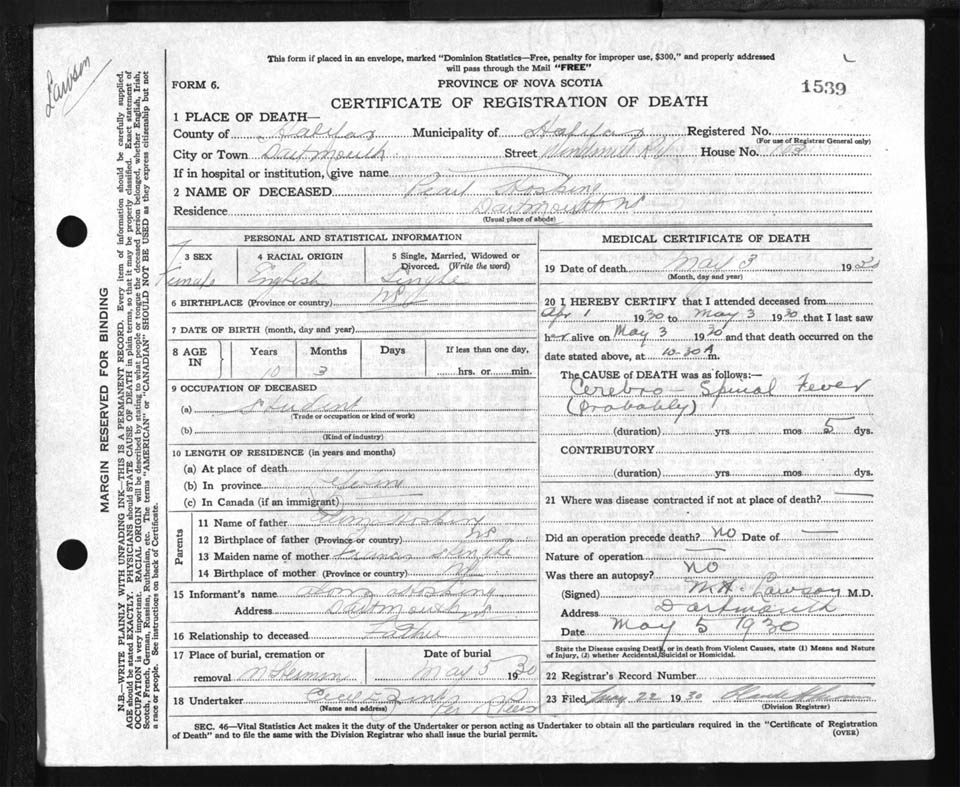 Lawson
This form if placed in an envelope, marked "Dominion Statistics—Free, penalty for improper use, $300," and properly addressed
will pass through the Mail "FREE"
FORM 6.
PROVINCE OF NOVA SCOTIA
1539
CERTIFICATE OF REGISTRATION OF DEATH
MARGIN RESERVED FOR BINDING
N.B.—WRITE PLAINLY WITH UNFADING INK—THIS IS A PERMANENT RECORD. Every item of information should be carefully supplied.
AGE should be stated EXACTLY. PHYSICIANS should STATE CAUSE OF DEATH in plain terms, so that it may be properly classified. Exact statement of
OCCUPATION is very important. RACIAL ORIGIN will be described by stating to what people or tongue the deceased person belonged, whether English, Irish,
Scotch, French, German, Russian, Ruthenian, etc. The terms "AMERICAN" or "CANADIAN" SHOULD NOT BE USED as they express citizenship but not
a race or people. See instructions on back of Certificate.
1 PLACE OF DEATH—
County of Halifax Municipality of Halifax Registered No.
(For use of Registrar General only)
City or Town Dartmouth Street Windmill Rd House No. 103
If in hospital or institution, give name
2 NAME OF DECEASED Pearl Hoskins
Residence Dartmouth NS
(Usual place of abode)
PERSONAL AND STATISTICAL INFORMATION
3 SEX 4 RACIAL ORIGIN 5 Single, Married, Widowed or
Divorced. (Write the word)
Female English Single
6 BIRTHPLACE (Province or country) NS
7 DATE OF BIRTH (month, day and year)
8 AGE IN Years Months Days If less than one day,
10 3 hrs. or min.
9 OCCUPATION OF DECEASED
(a) Student
(Trade or occupation or kind of work)
(b)
(Kind of industry)
10 LENGTH OF RESIDENCE (in years and months)
(a) At place of death
(b) In province
(c) In Canada (if an immigrant)
Parents
11 Name of father
12 Birthplace of father (Province or country) NS
13 Maiden name of mother
14 Birthplace of mother (Province or country) NS
15 Informant's name
Address Dartmouth NS
16 Relationship to deceased Father
17 Place of burial, cremation or Date of burial
removal May 5 1930
18 Undertaker Cecil E
(Name and address)
MEDICAL CERTIFICATE OF DEATH
19 Date of death May 3 19
(Month, day and year)
20 I HEREBY CERTIFY that I attended deceased from
Apr 1 1930 to May 3 1930 that I last saw
her alive on May 3 1930 and that death occurred on the
date stated above, at 10-30 A m.
The CAUSE of DEATH was as follows:—
Cerebro-Spinal Fever
(Probably)
(duration) yrs mos 5 dys.
CONTRIBUTORY
(duration) yrs. mos. dys.
21 Where was disease contracted if not at place of death? —
Did an operation precede death? NO Date of —
Nature of operation —
Was there an autopsy? NO
(Signed) M.A. Lawson M.D.
Address Dartmouth
Date May 5 1930
State the Disease causing Death, or in death from Violent Causes, state (1) Means and Nature
of Injury, (2) whether Accidental, Suicidal or Homicidal.
22 Registrar's Record Number
23 Filed 22 1930
(Division Registrar)
SEC. 46—Vital Statistics Act makes it the duty of the Undertaker or person acting as Undertaker to obtain all the particulars required in the "Certificate of Registration
of Death" and to file the same with the Division Registrar who shall issue the burial permit.
(OVER)